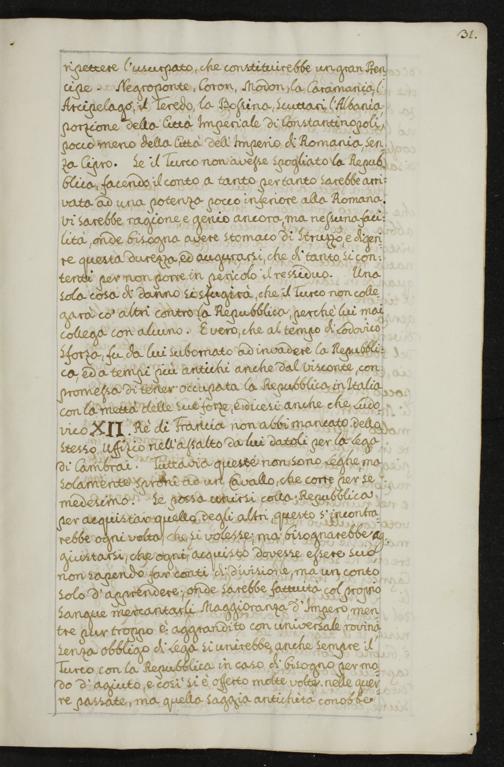 31.
ripettere l'usurpato, che constituirebbe un gran Pren
cipe. Negroponte, Coron, Modon, la Caramania, l'
Arcipelago, il Teredo, la Bossina, Scuttari, l'Albania
porzione della Città Imperiale di Constantinopoli,
poco meno della Città dell'Imperio di Romania, sen
za Cipro. Se il Turco non avesse spogliato la Repub
blica, facendo il conto a tanto per tanto sarebbe arri
vata ad una potenza pocco inferiore alla Romana.
Vi sarebbe ragione e genio ancora, ma nessuna faci
lità, onde bisogna avere stomaco di Struzzo, e digeri
re questa durezza ed augurarsi, che di tanto si con
tenti per non porre in pericolo il residuo. Una
sola cosa di danno si sfugirà, che il Turco non colle
garà co' altri contro la Repubblica, perche lui mai
collega con alcuno. E vero, che al tempo di Lodovico
Sforza, fu da lui subornato ad invadere la Repubbli
ca, ed a tempi più antichi anche dal Visconte, con
promessa di tener occupata la Repubblica in Italia
con la mettà delle sue forze, e dicesi anche che Ludo
vico XII. Rè di Francia non abbi mancato dello
stesso Uffizio nell'assalto da lui datoli per la lega
di Cambrai. Tuttavia queste non sono leghe, ma
solamente sproni ad un Cavallo, che corre per se
medesimo. Se possa unirsi colla Repubblica
per acquistar quello degli altri, questo s'incontra
rebbe ogni volta che si volesse, ma bisognarebbe ag
giustarsi, che ogni acquisto dovesse essere suo
non sapendo far conti di divisione, ma un conto
solo d'apprendere, onde sarebbe fattuita col proprio
sangue mercantarli Maggioranza d'Impero men
tre pur troppo è aggrandito con universale rovina
senza obbligo di lega si unirebbe anche sempre il
Turco con la Repubblica in caso di bisogno per mo
do d'agiuto, e così si è offerto molte volte nelle guer
re passate, ma quella saggia antichità conobbe